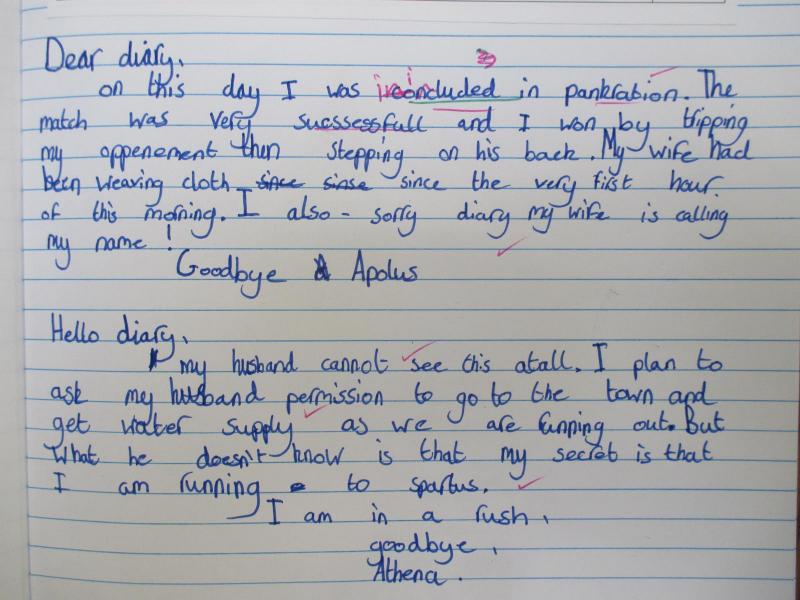 Dear diary,
on this day I was concluded in pankration. The
match was very sucssessfull and I won by tripping
my oppenement then stepping on his back. My wife had
been weaving cloth since sinse since the very first hour.
of this morning. I also - sorry diary my wife is calling
my name!
Goodbye Apolus
Hello diary,
my husband cannot see this atall. I plan to
ask my husband permission to go to the town and
get water supply as we are running out. But
what he doesn't know is that my secret is that
I am running to spartus.
I am in a rush,
goodbye,
Athena.